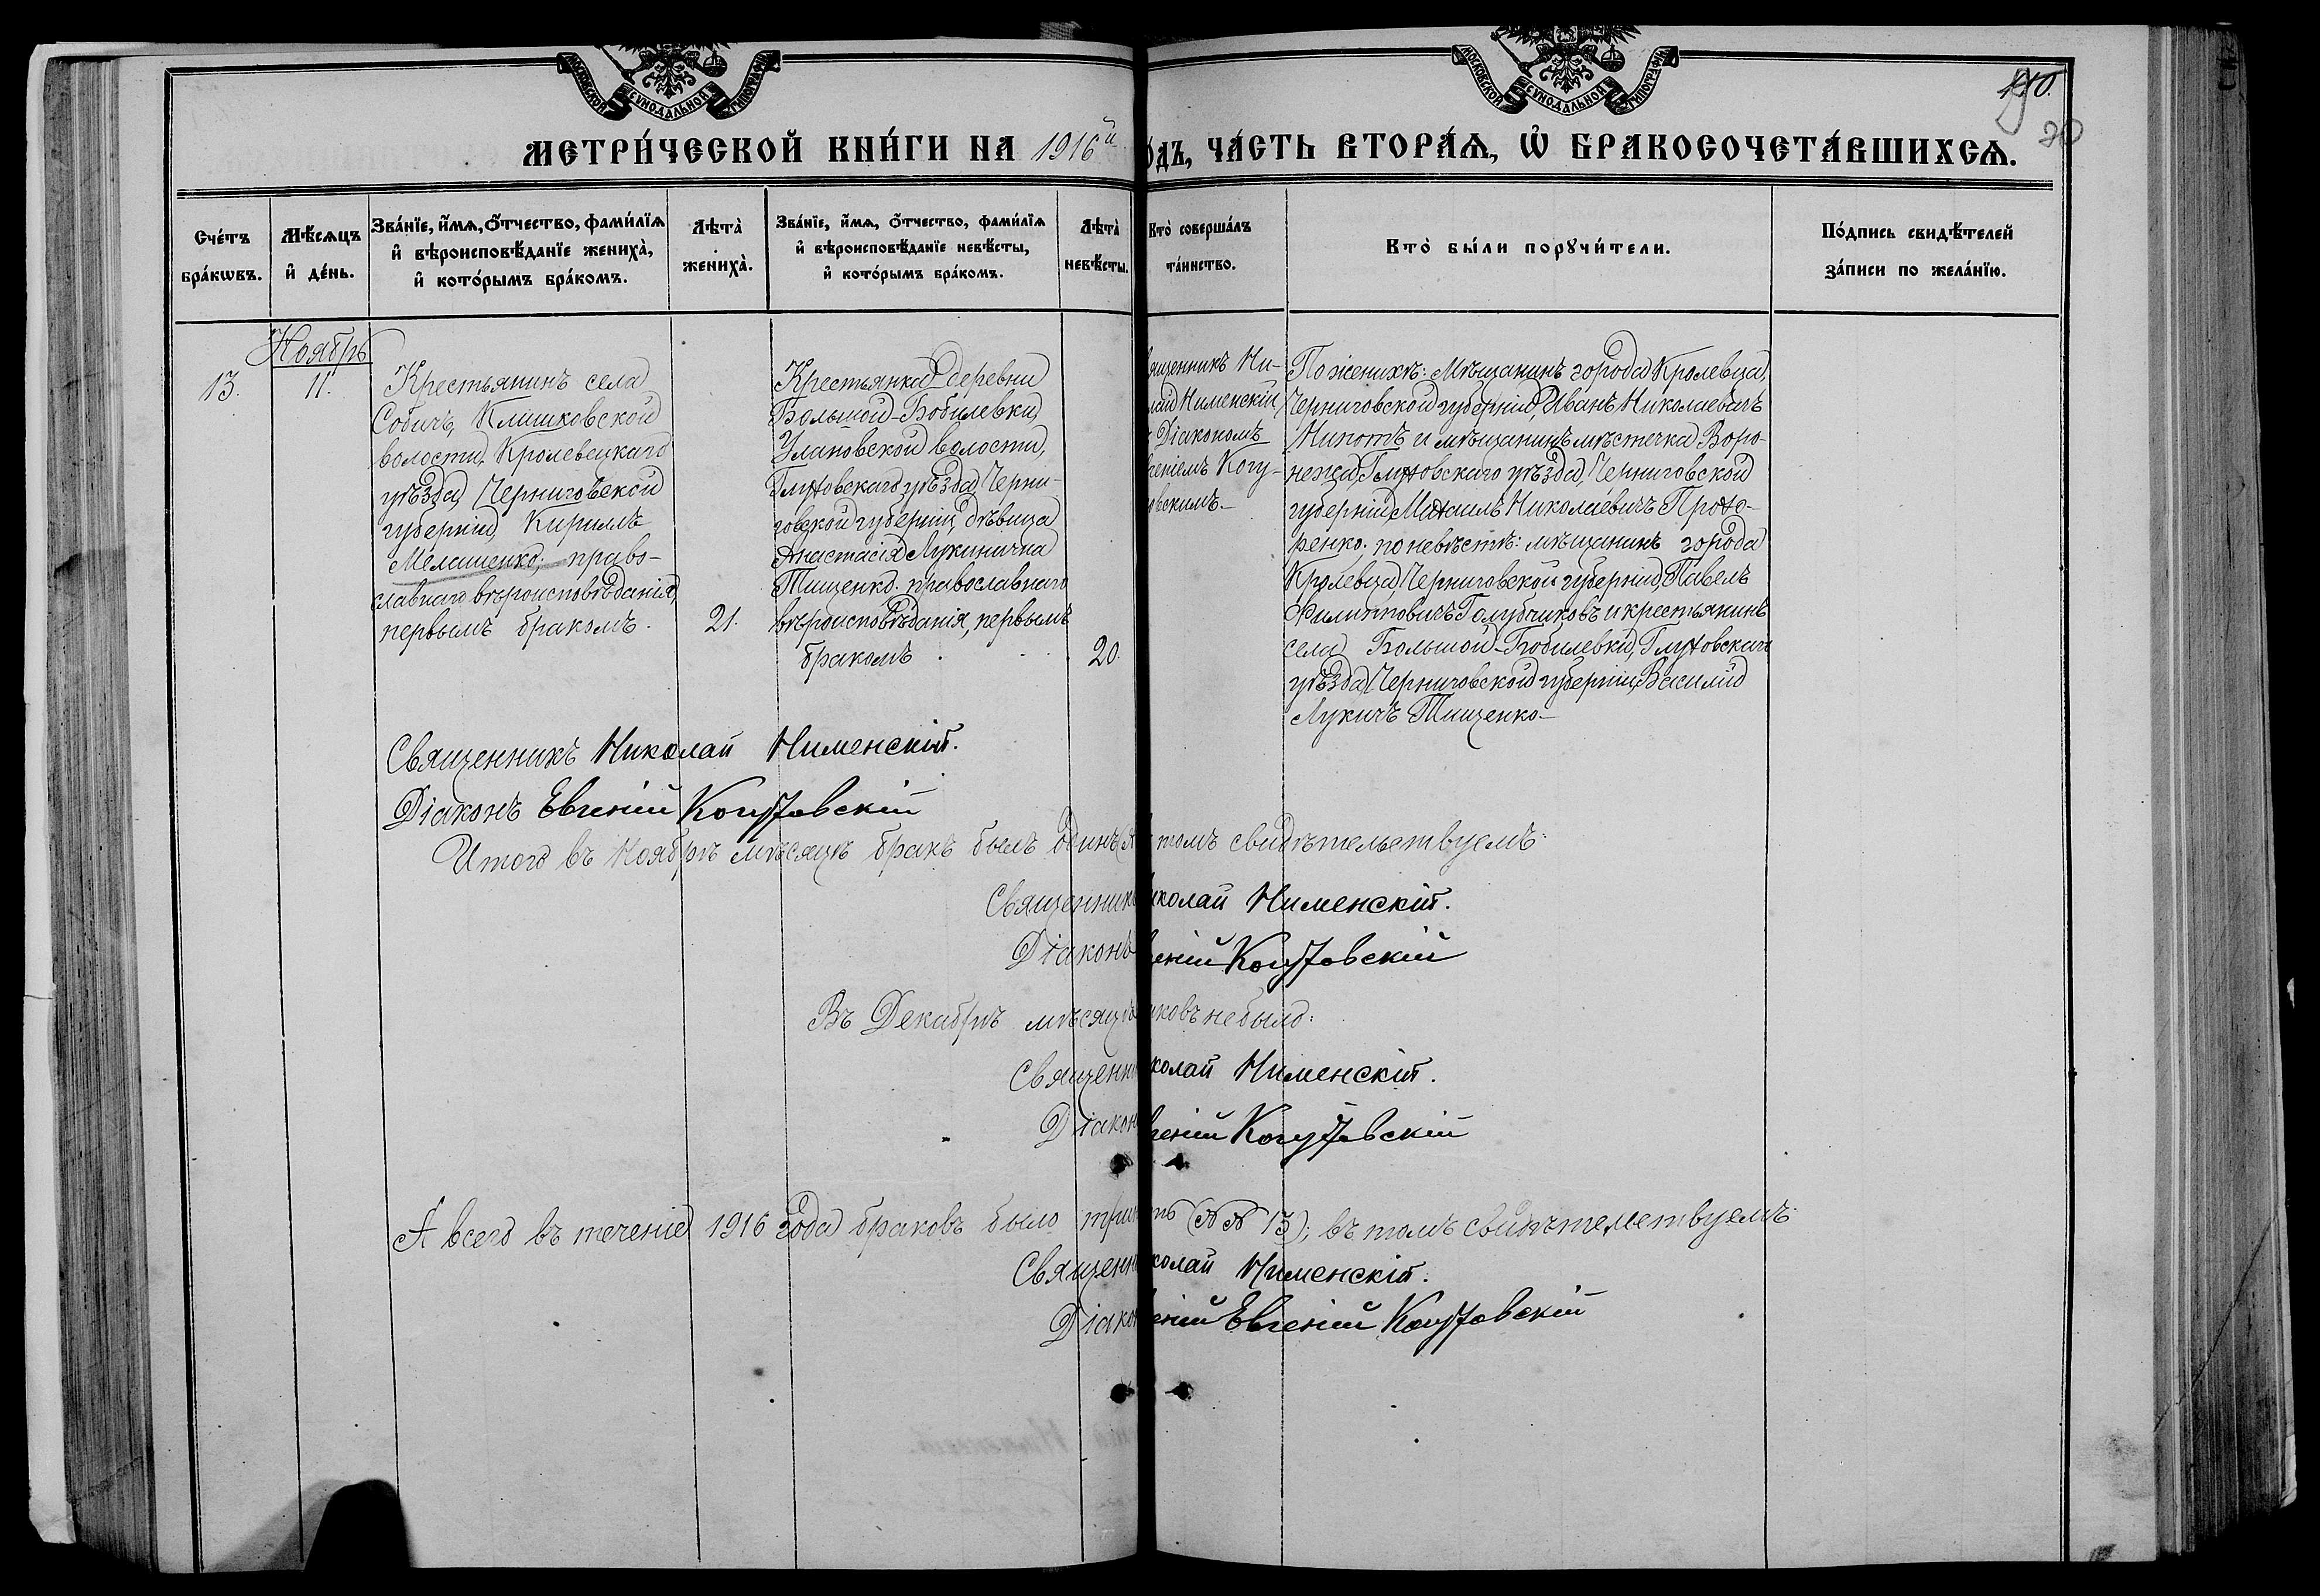 МОСКОВСКОЙ СѴНОДАЛЬНОЙ ТИПОГРАФІИ
МОСКОВСКОЙ СѴНОДАЛЬНОЙ ТИПОГРАФІИ
МЕТРИ́ЧЕСКОЙ КНИ́ГИ НА 1916й
о́дъ, ЧА́СТЬ ВТОРА́Ѧ, Ѡ҆ БРАКОСОЧЕТА́ВШИХСѦ.
Сче́тъ бра́кѡвъ.
Мѣ́сяцъ и҆ де́нь.
Зва́нїе, и҆́мѧ, ѻ҆́тчество, фами́лїѧ и҆ вѣроисповѣ́данїе жениха̀, и҆ кото́рымъ бра́комъ.
Лѣта̀ жениха̀.
Зва́нїе, и҆́мѧ, ѻ҆́тчество, фами́лїѧ и҆ вѣроисповѣ́данїе невѣ́сты, и҆ кото́рымъ бра́комъ.
Лѣта̀ невѣ́сты.
Кто̀ соверша́лъ та́инство.
Кто̀ бы́ли порꙋчи́тели.
По́дпись свидѣ́телей за́писи по жела́нїю.
Ноябрь
13.
11.
Крестьянинъ села
Собичъ, Клишковской
волости, Кролевецкаго
уѣзда, Черниговской
губерніи, Кириллъ
Мелашенко, право-
славнаго вѣроисповѣданія,
первымъ бракомъ.
21.
Крестьянка деревни
Большой-Бобилевки,
Улановской волости,
Глуховскаго уѣзда, Черни-
говской губерніи, дѣвица
Анастасія Лукинична
Тищенко, православнаго
вѣроисповѣданія, первымъ
бракомъ
20.
ященникъ Ни-
лай Нименскій
Діакономъ
геніемъ Когу-
овскимъ.—
По женихѣ: мѣщанинъ города Кролевца,
Черниговской губерніи, Иванъ Николаевичъ
и мѣщанинъ мѣстечка Воро-
нежа, Глуховскаго уѣзда, Черниговской
губерніи Михаилъ Николаевичъ Прохо-
ренко; по невѣстѣ: мѣщанинъ города
Кролевца, Черниговской губерніи, Павелъ
Филипповичъ Голубчиковъ и крестьянинъ
села Большой-Бобилевки, Глуховскаго
уѣзда, Черниговской губерніи, Василій
Лукичъ Тищенко—
Священникъ Николай Нименскій.
Діаконъ Евгеній
Итого въ Ноябрѣ мѣсяцѣ бракъ былъ одинъ томъ свидѣтельствуемъ:
Священникъ иколай Нименскій.
Діаконъ геній
Въ Декабрѣ мѣсяцѣ аковъ не было:
Священни колай Нименскій.
Діакон геній
А всего въ теченіе 1916 года браковъ было трин ть (№№ 13); въ томъ свидѣтельствуемъ:
Священн колай Нименскій.
Діакон геній Евгеній